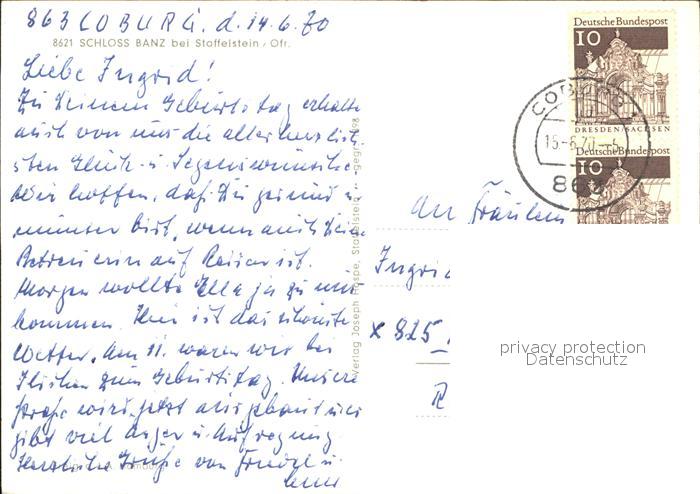 863 COBURG. d. 14.6.70
8621 SCHLOSS BANZ bei Staffelstein / Ofr.
Liebe Ingrid!
Zu Deinem Geburtstag erhalte
auch von uns die allerherzlich-
sten Glück- u. Segenswünsche
Wir hoffen, daß Du gesund u.
munter bist, wenn auch Deine
Betreuerin auf Reisen ist.
Morgen wollte Ella ja zu uns
kommen. Hier ist das schönste
Wetter. Am 11. waren wir bei
zum Geburtstag. Unsere
Straße wird jetzt ausgebaut und
gibt viel Ärger u. Aufregung
Herzliche Grüße von u.
Verlag Joseph Hospe, Staffelstein
gegr. 1898
Deutsche Bundespost
10
DRESDEN/SACHSEN
Deutsche Bundespost
10
COBURG
15.-6.70
863
An Fräulein
Ingrid
x 825
R
privacy protection
Datenschutz